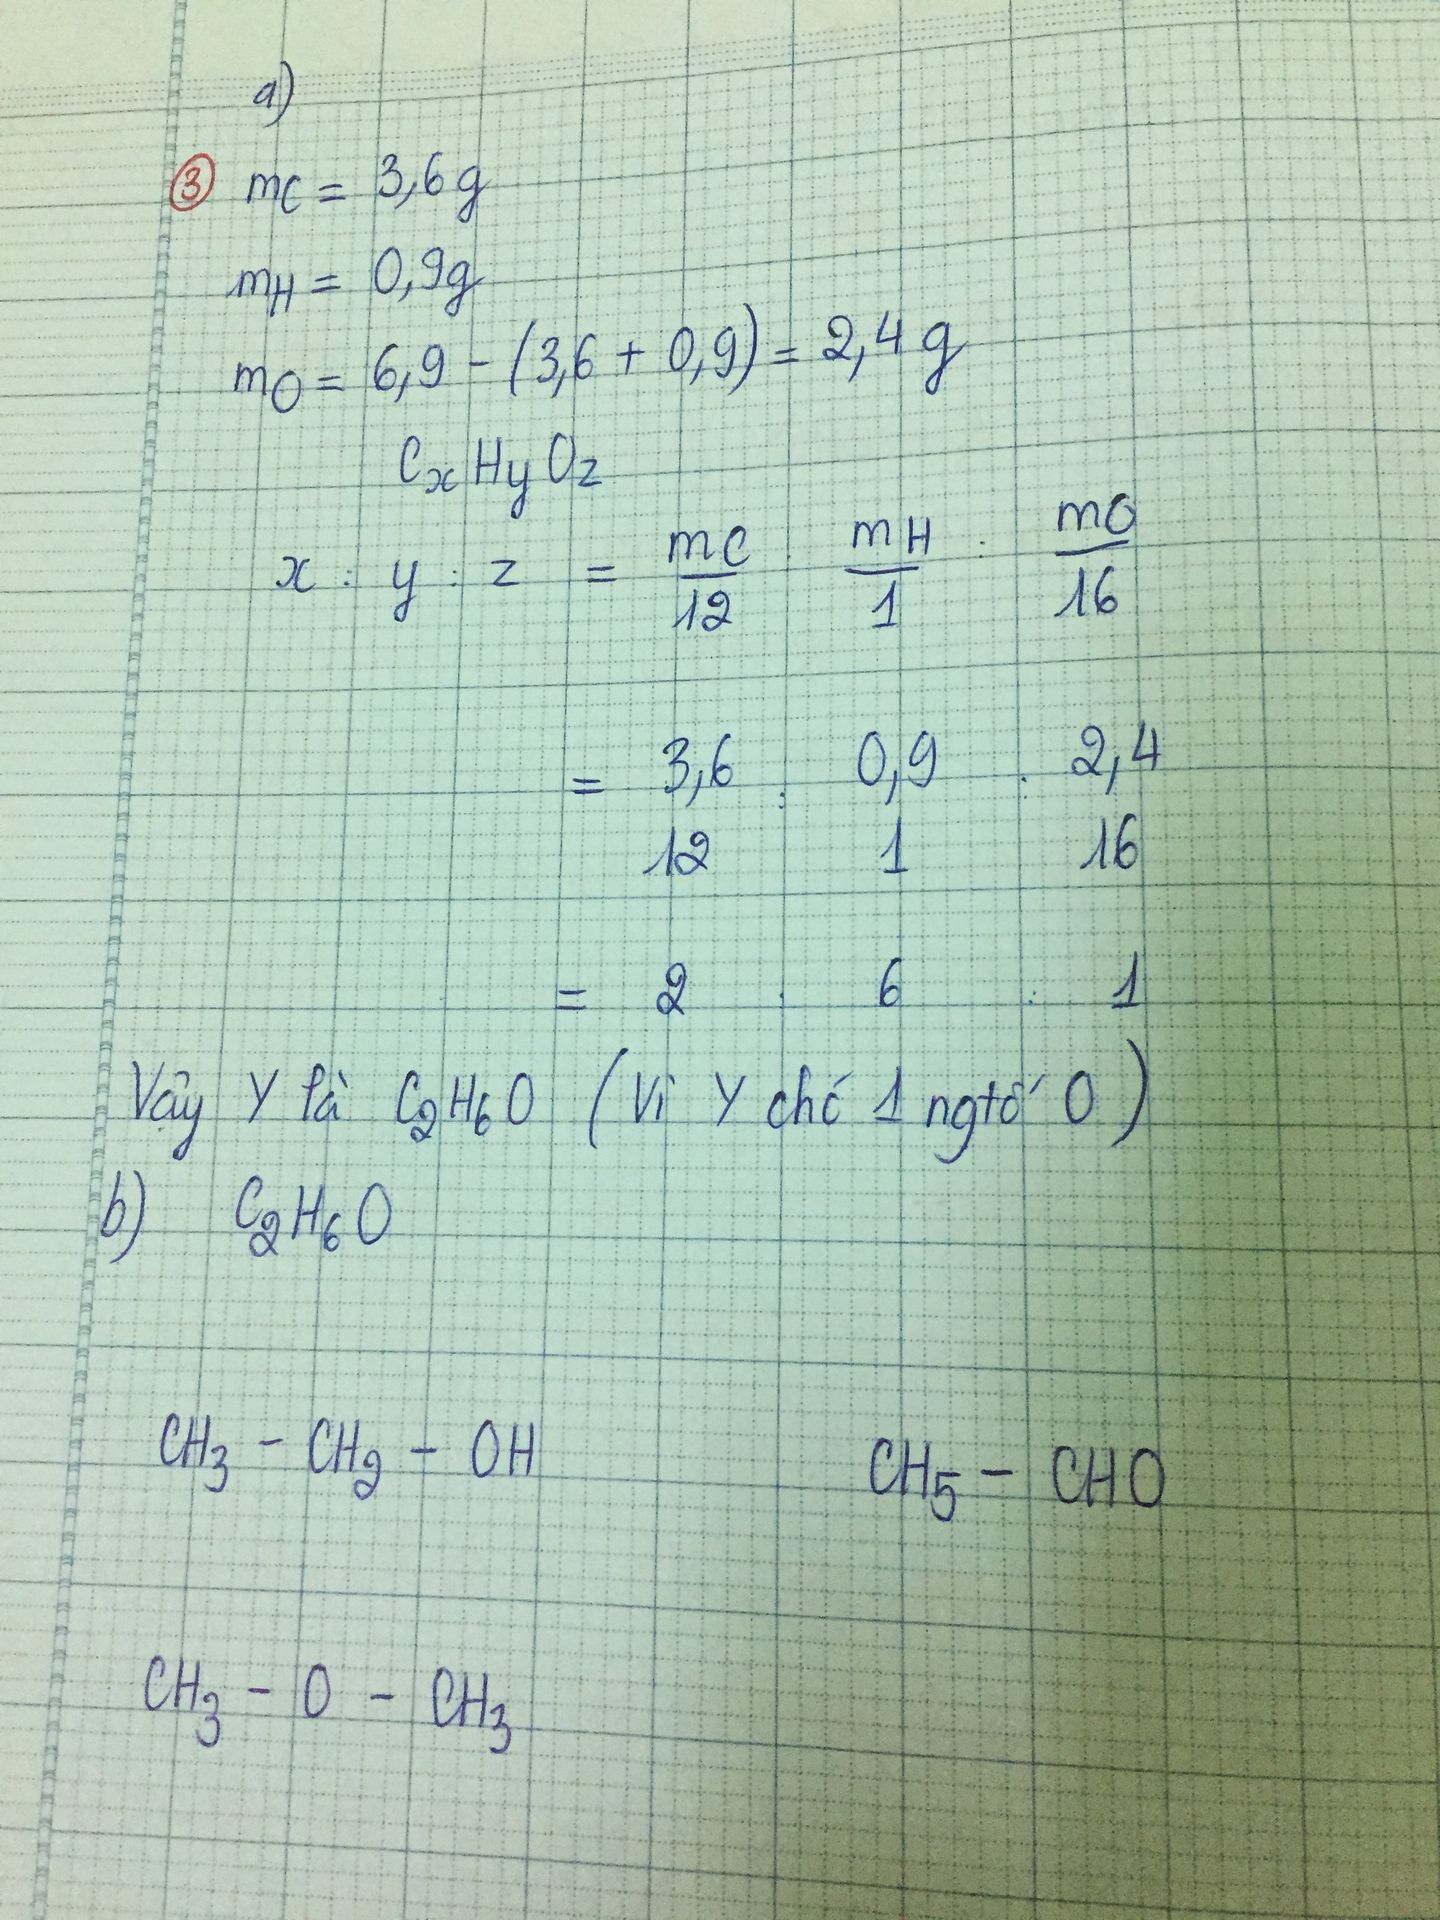 a)
③ mC = 3,6g
mH = 0,9g
mO = 6,9 - (3,6 + 0,9) = 2,4 g
CxHyOz
x : y : z = mC/12 : mH/1 : mO/16
= 3,6 : 0,9 : 2,4
12 1 16
= 2 : 6 : 1
Vậy Y là C2H6O (Vì Y chó 1 ngtố O)
b) C2H6O
CH3 - CH2 - OH
CH5 - CHO
CH3 - O - CH3